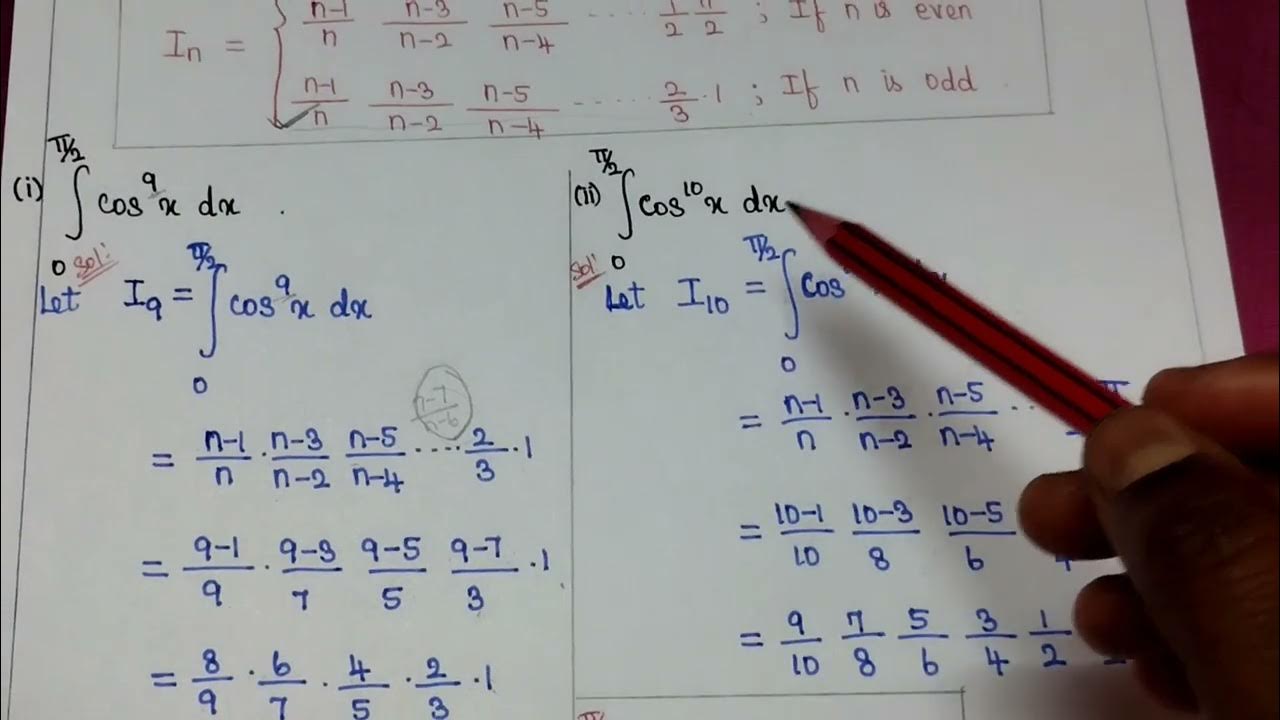 n-1/n n-3/n-2 n-5/n-4 ..... 1/2 π/2 ; If n is even
In = {
n-1/n n-3/n-2 n-5/n-4 ..... 2/3 · 1 ; If n is odd
(i) ∫₀^{π/2} cos⁹x dx .
Sol:
Let I₉ = ∫₀^{π/2} cos⁹x dx
n-7/n-6
= n-1/n · n-3/n-2 n-5/n-4 .... 2/3 · 1
= 9-1/9 · 9-3/7 9-5/5 9-7/3 · 1
= 8/9 · 6/7 · 4/5 · 2/3 · 1
(ii) ∫₀^{π/2} cos¹⁰x dx
Sol:
Let I₁₀ = ∫₀^{π/2} cos
= n-1/n · n-3/n-2 · n-5/n-4 ... π
= 10-1/10 10-3/8 10-5/6
= 9/10 7/8 5/6 3/4 1/2